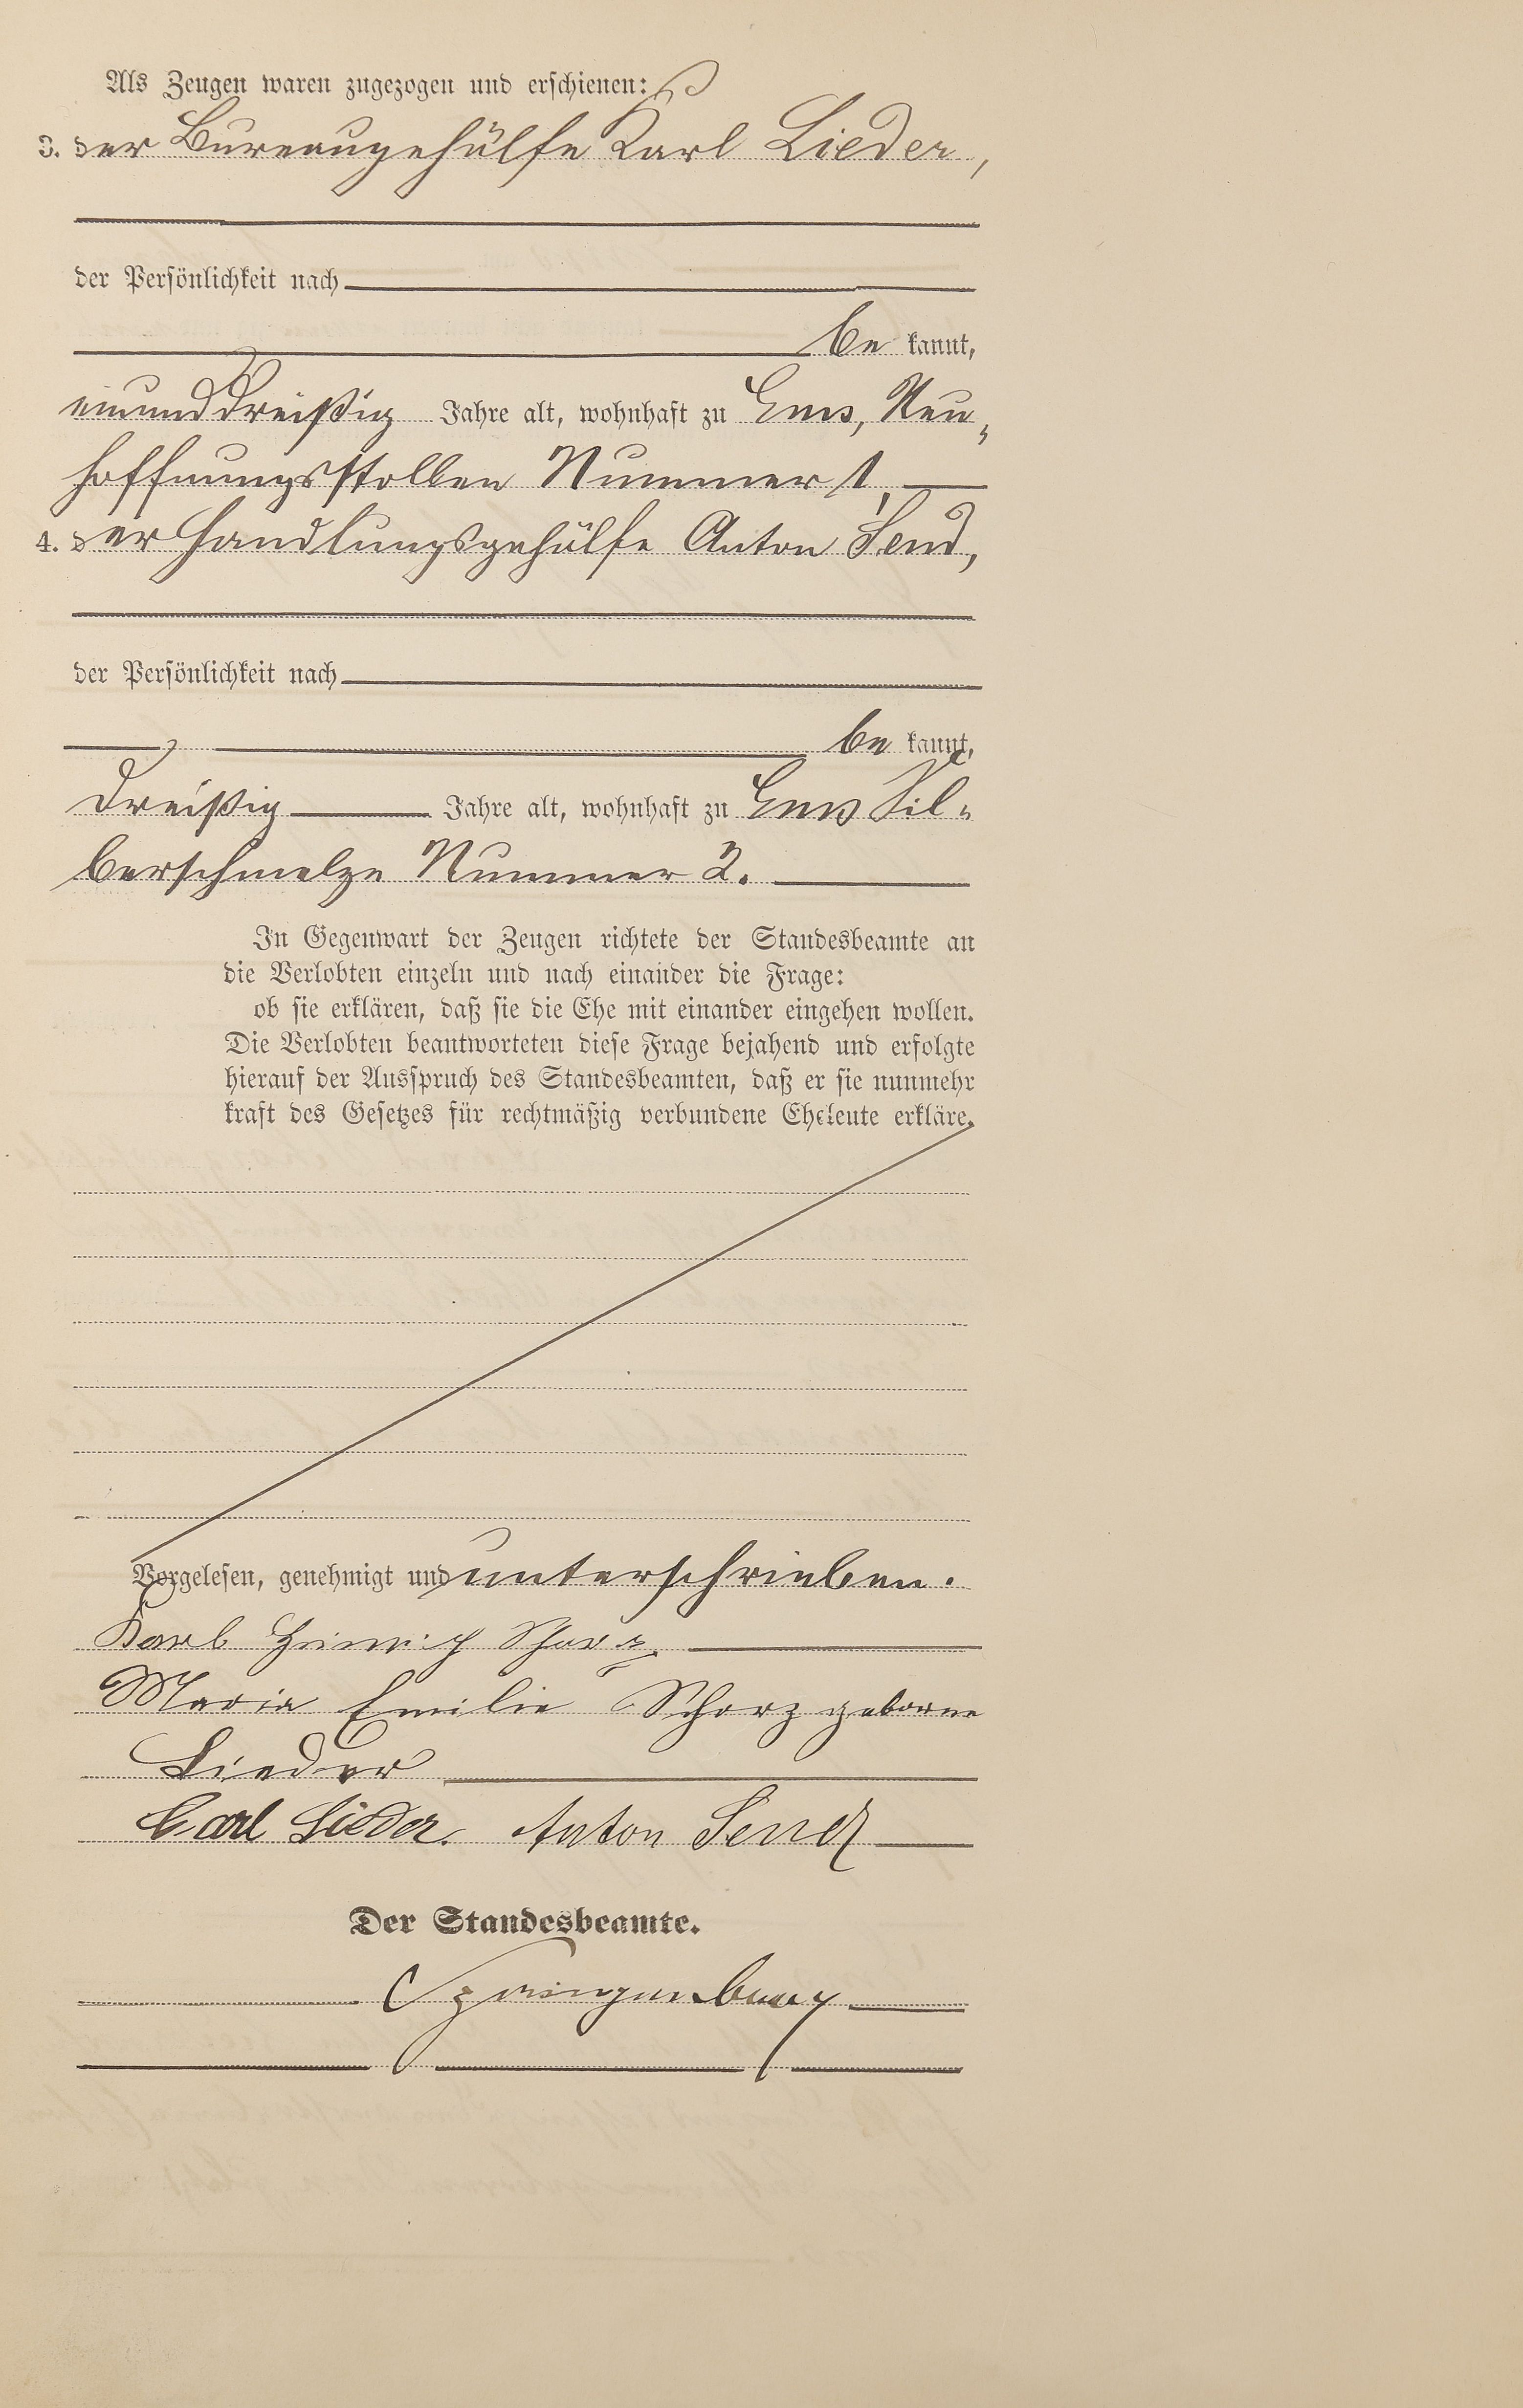 Als Zeugen waren zugezogen und erschienen:
3. der Bureaugehülfe Karl Lieder,
der Persönlichkeit nach
be kannt,
einunddreißig Jahre alt, wohnhaft zu Ems, Neu-
hoffnungsstollen Nummer 1,
4. der Handlungsgehülfe Anton Send,
der Persönlichkeit nach
be kannt,
dreißig Jahre alt, wohnhaft zu Ems Sil-
berschmelze Nummer 2.
In Gegenwart der Zeugen richtete der Standesbeamte an
die Verlobten einzeln und nach einander die Frage:
ob sie erklären, daß sie die Ehe mit einander eingehen wollen.
Die Verlobten beantworteten diese Frage bejahend und erfolgte
hierauf der Ausspruch des Standesbeamten, daß er sie nunmehr
kraft des Gesetzes für rechtmäßig verbundene Eheleute erkläre.
Vorgelesen, genehmigt und unterschrieben.
Karl Heinrich Schorz
Maria Emilie Schorz geborne
Lieder
Carl Lieder. Anton Send
Der Standesbeamte.